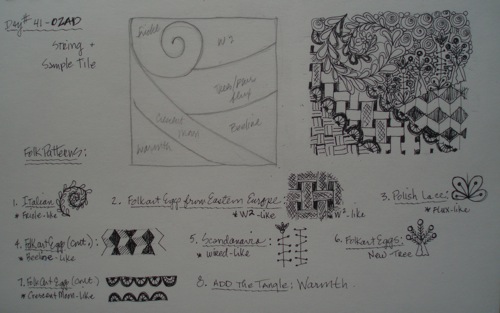 Day# 41 - OZAD
String +
Sample Tile
W2
Flux
Crescent
Moon
Beeline
Warmth
Folk Patterns:
1. Italian
* Festle-like
2. Folkart Eggs from Eastern Europe:
* W2-like
3. Polish Lace:
* Flux-like
4. Folkart Egg (cont.):
* Beeline-like
5. Scandanavia
* Wired-like
6. Folkart Eggs:
New-Tree
7. Folkart Egg (cont.)
* Crescent Moon-Like
8. ADD The Tangle: Warmth.